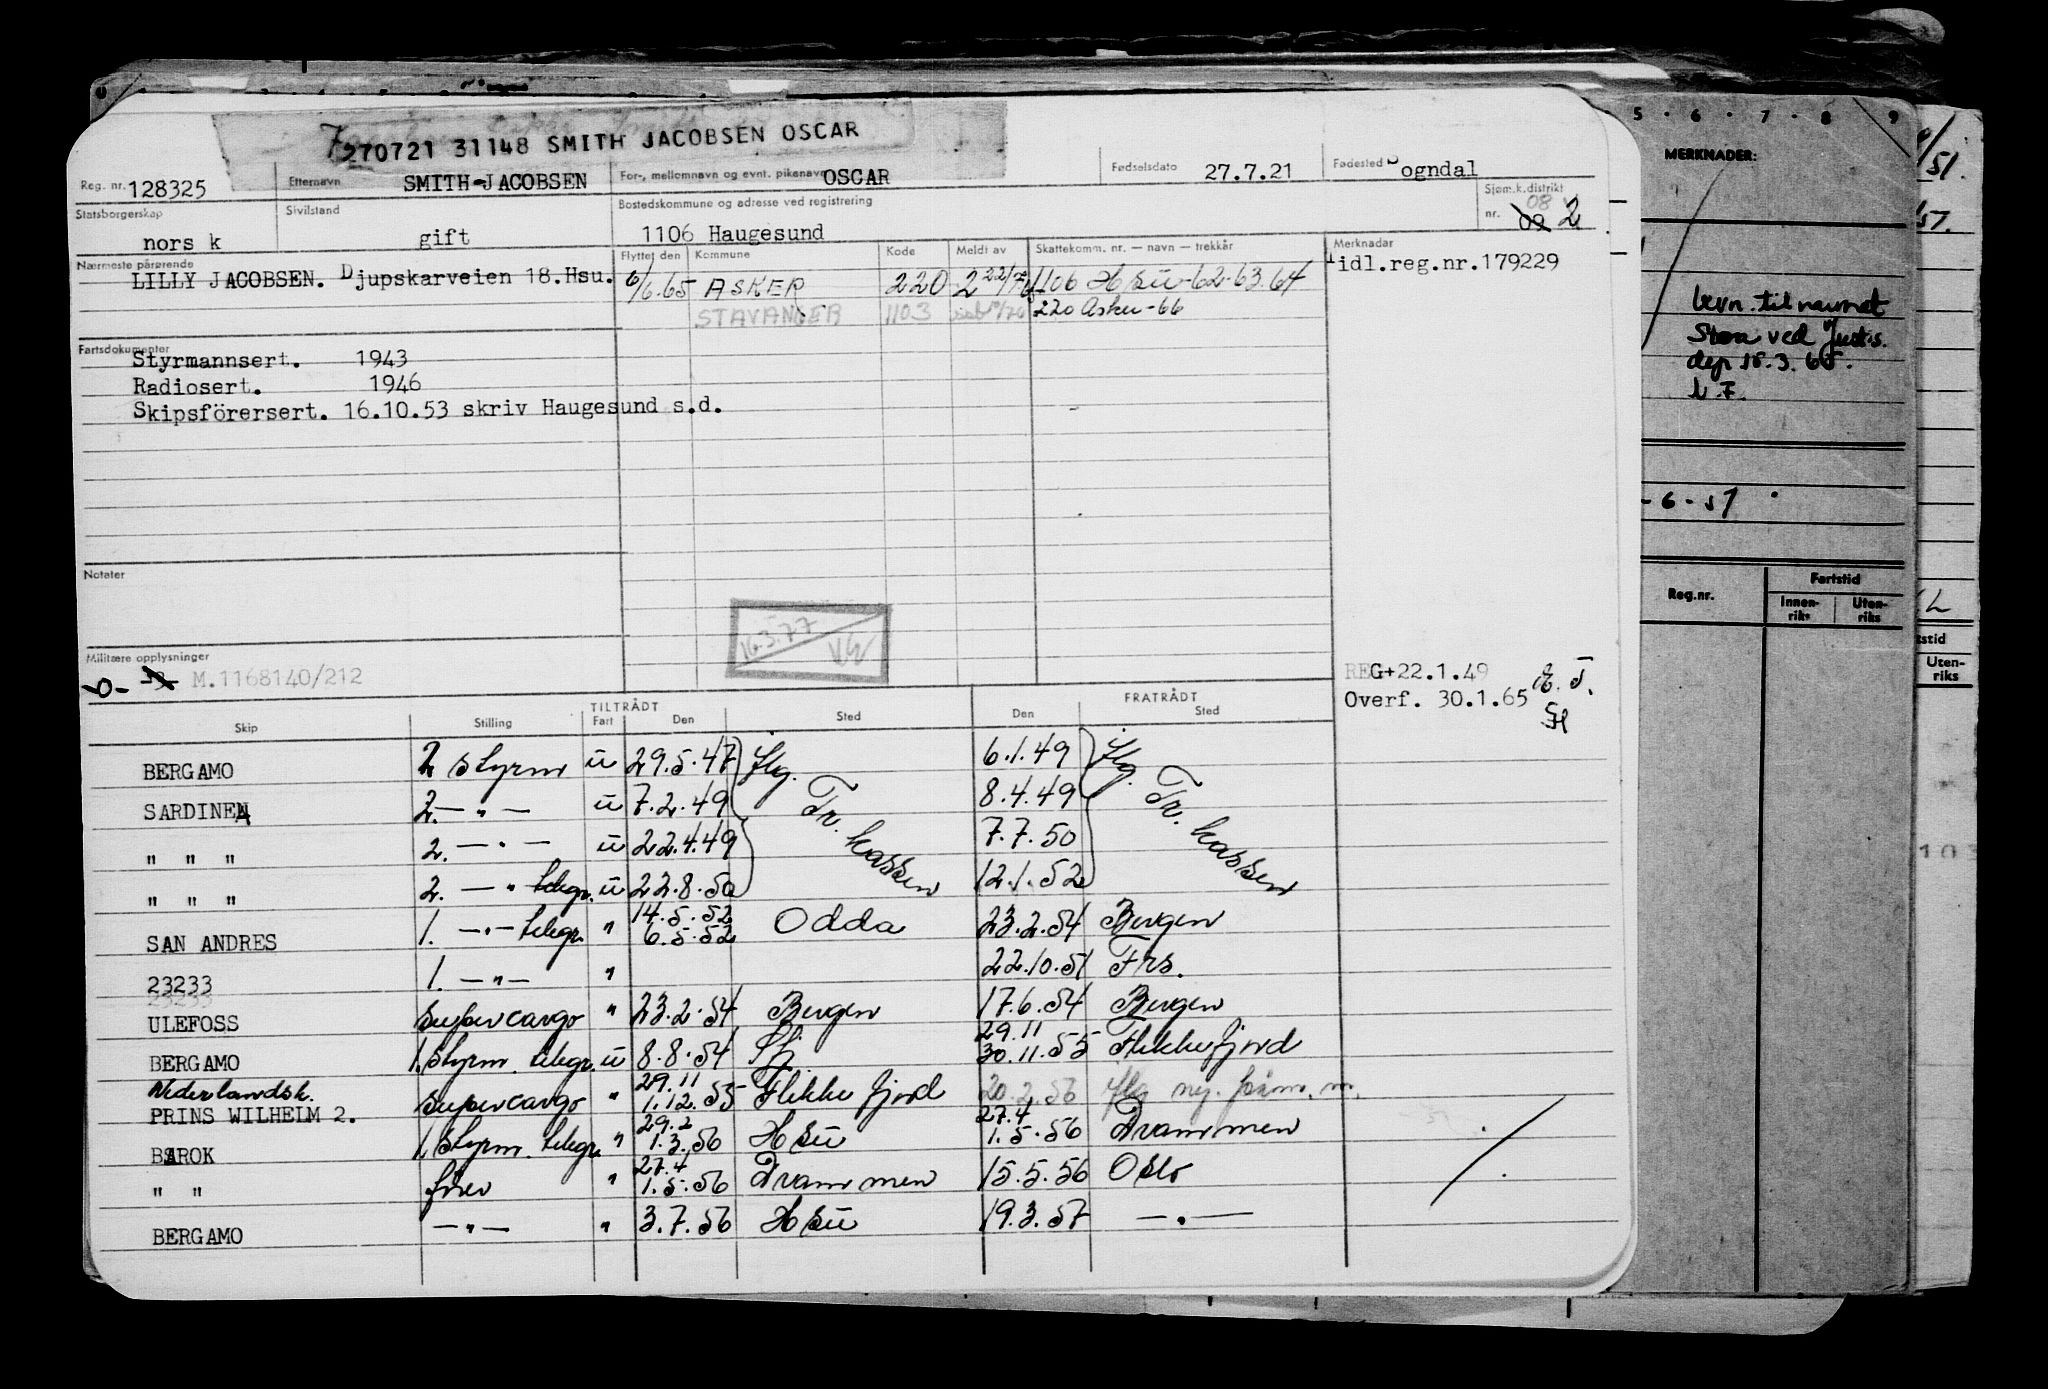 270721 31148 SMITH JACOBSEN OSCAR
Reg. nr. 128325 Etternavn SMITH-JACOBSEN For-, mellomnavn og evnt. pikenavn OSCAR Fødselsdato 27.7.21 Fødested Sogndal
Statsborgerskap norsk Sivilstand gift Bostedskommune og adresse ved registrering 1106 Haugesund Sjøm.k.distrikt nr. 08 09 2
Nærmeste pårørende Flyttet den Kommune Kode Meldt av Skattekomm. nr. — navn — trekkår Merknader
LILLY JACOBSEN. Djupskarveien 18.Hsu. 6/6.65 ASKER 220 1106 Hsu-62-63.64 idl.reg.nr.179229
STAVANGER 1103 220 Asker-66
Fartsdokumenter
Styrmannsert. 1943
Radiosert. 1946
Skipsförersert. 16.10.53 skriv Haugesund s.d.
Notater
16.3.77
Militære opplysninger
-0- M.1168140/212
REG+22.1.49
Overf. 30.1.65
TILTRÅDT FRATRÅDT
Skip Stilling Fart Den Sted Den Sted
BERGAMO 2 styrm u 29.5.47 iflg. Tr. kassen 6.1.49 iflg. Tr. kassen
SARDINEN 2. —"— u 7.2.49 8.4.49
" " " 2. —"— u 22.4.49 7.7.50
" " " 2. —" telegr. u 22.8.50 12.1.52
SAN ANDRES 1. —"— telegr. " 14.5.52 6.5.52 Odda 23.2.54 Bergen
23233 1. —"— " 22.10.51 Frs.
ULEFOSS supercargo " 23.2.54 Bergen 17.6.54 Bergen
BERGAMO 1. styrm. telegr. u 8.8.54 29.11 30.11.55 Flekkefjord
Nederlandsk.
PRINS WILHELM 2. supercargo " 29.11 1.12.55 Flekkefjord 20.2.56
BAROK 1. styrm. telegr. " 29.2 1.3.56 Hsu 27.4 1.5.56 Drammen
" " fører " 27.4 1.5.56 Drammen 15.5.56 Oslo
BERGAMO —"— " 3.7.56 Hsu 19.3.57 —"—
5 · 6 · 7 · 8 · 9
MERKNADER:
bevn. til navnet
Stoa ved Justis.
dep 15.3.65.
-6-57
Reg.nr. Fartstid
Innen-riks Uten-riks
51.
57.
Uten-
riks